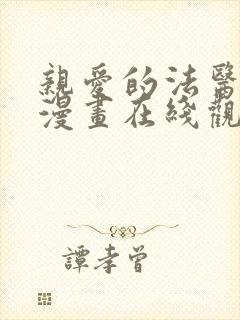 親愛的法醫
漫畫在綫觀
譚孝曾